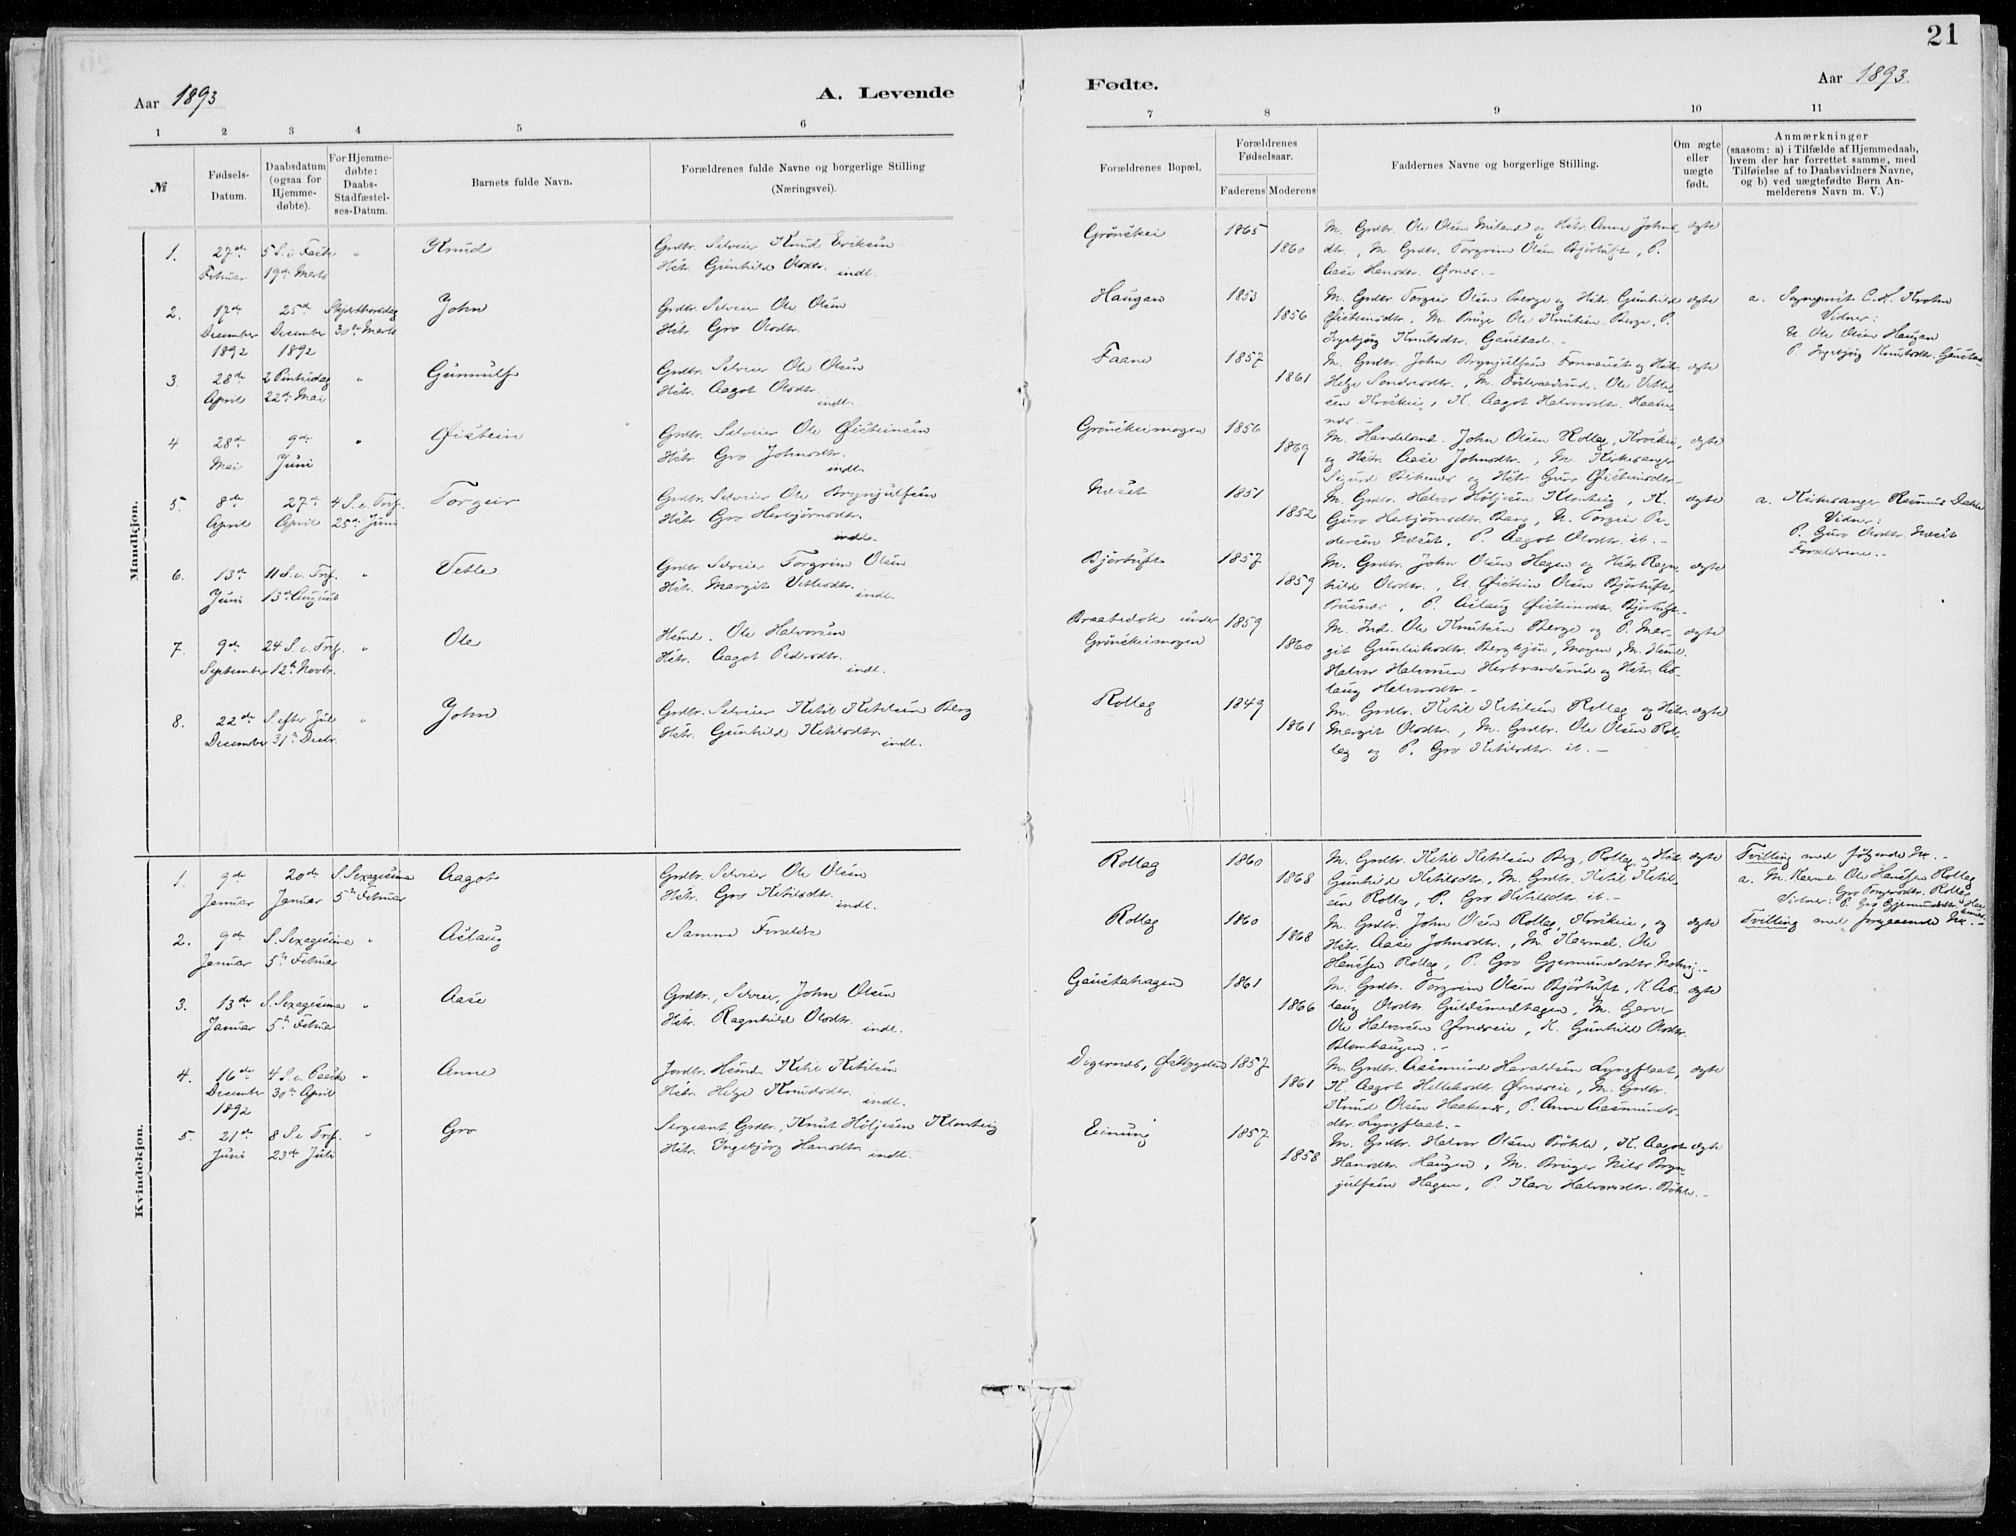 21
Aar 1893
A. Levende
Fødte.
Aar 1893.
1 2 3 4 5 6 7 8 9 10 11
№
Fødsels-
Datum.
Daabsdatum
(ogsaa for
Hjemme-
døbte).
For Hjemme-
døbte:
Daabs-
Stadfæstel-
ses-Datum.
Barnets fulde Navn.
Forældrenes fulde Navne og borgerlige Stilling
(Næringsvei).
Forældrenes Bopæl.
Forældrenes
Fødselsaar.
Faderens Moderens
Faddernes Navne og borgerlige Stilling.
Om ægte
eller
uægte
født.
Anmærkninger
(saasom: a) i Tilfælde af Hjemmedaab,
hvem der har forrettet samme, med
Tilføielse af to Daabsvidners Navne,
og b) ved uægtefødte Børn An-
melderens Navn m. V.)
Mandkjøn.
1. 27de Februar
5 S. i Faste 19de Marts
"
Knud
Grdbr. Selveier Knud Eriksen
Hstr. Gunhild Olsdtr. indl.
Grönskei
1865
1860
M. Grdbr. Ole Olsen Miland og Hstr. Anne Johns-
dtr., M. Grdbr. Torgrim Olsen Bjørtuft, P.
Aase Hansdtr. Ørnes. -
ægte
2. 17de December 1892
25de December 1892
Skjærthorsdag 30te Marts
John
Grdbr. Selveier Ole Olsen
Hstr. Gro Olsdtr.
Haugan
1853
1856
M. Grdbr. Torgeir Olsen Berge og Hstr. Gunhild
Øisteinsdtr., M. Bruger Ole Knutsen Berge, P.
Ingebjörg Knutsdtr. Gaustad. -
ægte
a. Sogneprest C. K. Krohn
Vidner:
U. Ole Olsen Haugan
P. Ingebjörg Knutsdtr. Gaustad
3. 28de April
2 Pintsedag 22de Mai
"
Gunnulf
Grdbr. Selveier Ole Olsen
Hstr. Aagot Olsdtr.
indl.
Faane
1857
1861
M. Grdbr. John Brynjulfsen og Hstr.
Helge Sondresdtr., M. Ole Vetle-
sen Kroskei, K. Aagot Halvorsdtr. Haake-
næs. -
ægte
4 28de Mai
9de Juni
"
Øistein
Grdbr. Selveier Ole Øisteinsen
Hstr. Gro Johnsdtr.
indl.
Grönskeimogen
1856
1869
M. Handelsmd. John Olsen Rollag, Kroskei,
og Hstr. Aase Johnsdtr., M. Kirkesanger
Sigurd og Hstr. Guro Øisteinsdtr.-
ægte
5. 8de April
27de April
4 S. e. Tref. 25de Juni
Torgeir
Grdbr. Selveier Ole Brynjulfsen
Hstr. Gro Herbjørnsdtr.
indl.
Næset
1851
1852
M. Grdbr. Halvor Höljesen Klonteig, K.
Guro Herbjørnsdtr. Berg, U. Torgeir Pe-
dersen Næset, P. Aagot Olsdtr. ib. -
ægte
a. Kirkesanger Dahle
Vidner:
P. Guro Olsdtr. Næset
Forældrene. -
6. 13de Juni
11 S. e. Tref. 13de August
"
Vetle
Grdbr. Selveier Torgrim Olsen
Hstr. Margit Vetlesdtr.
indl.
Bjørtuft
1857
1859
M. Grdbr. John Olsen Hagen og Hstr. Ragn-
hild Olsdtr., U. Øistein Olsen Bjørtuft,
Busnes, P. Aslaug Øisteinsdtr. Bjørtuft. -
ægte
7. 9de September
24 S. e. Tref. 12te Novbr.
"
Ole
Hsmd. Ole Halvorsen
Hstr. Aagot Pedersdtr.
indl.
Braatedok under
Grönskeimogen
1859
1860
M. Ind. Ole Knutsen Berge og P. Mar-
git Gunleiksdtr. Bergkjön, Mogen, M. Hsmd.
Halvor Halvorsen Herbrandsrud og Hstr. As-
laug Halvorsdtr. -
ægte
8. 22de December
S. efter Jul 31te Decbr.
"
John
Grdbr. Selveier Ketil Ketilsen Berg
Hstr. Gunhild Ketilsdtr.
indl.
Rollag
1849
1861
M. Grdbr. Ketil Ketilsen Rollag og Hstr.
Margit Olsdtr., M. Grdbr. Ole Olsen Rol-
lag og P. Gro Ketilsdtr. ib. -
ægte
Kvindekjøn.
1. 9de Januar
20de Januar
S. Sexagesima 5te Februar
Aagot
Grdbr. Selveier Ole Olsen
Hstr. Gro Ketilsdtr.
indl.
Rollag
1860
1868
M. Grdbr. Ketil Ketilsen Berg, Rollag, og Hstr.
Gunhild Ketilsdtr., M. Grdbr. Ketil Ketil-
sen Rollag, P. Gro Ketilsdtr. ib. -
ægte
Tvilling med følgende Nr. -
a. M. Kaarmd. Ole Hansen Rollag
Gro Torgersdtr. Rollag
Vidner: P. Gro Gjermundsdtr.
2. 9de Januar
S. Sexagesima 5te Februar
"
Aslaug
Samme Forældre
Rollag
1860
1868
M. Grdbr. John Olsen Rollag, Kroskei, og
Hstr. Aase Johnsdtr., M. Kaarmd. Ole
Hansen Rollag, P. Gro Gjermundsdtr.
ægte
Tvilling med foregaaende Nr. -
3. 13de Januar
S. Sexagesima 5te Februar
"
Aase
Grdbr., Selveier, John Olsen
Hstr. Ragnhild Olsdtr.
indl.
Gaustahagen
1861
1866
M. Grdbr. Torgrim Olsen Bjørtuft, K. As-
laug Olsdtr. Guldsmedhagen, M. Garver
Ole Halvorsen Ørnseie, K. Gunhild Olsdtr.
Blomhaugen. -
ægte
4. 16de December 1892
4 S. e. Paaske 30te April
"
Anne
Jordbr. Hsmd. Ketil Ketilsen
Hstr. Helge Knudsdtr.
indl.
Digernæs, Østbygden
1857
1861
M. Grdbr. Aasmund Haraldsen Lyngflaat,
K. Aagot Helleksdtr. Ørneseie, M. Grdbr.
Knud Olsen Haakenæs, P. Anne Aasmunds-
dtr. Lyngflaat. -
ægte
5. 21de Juni
8 S. e. Tref. 23de Juli
"
Gro
Sergeant Grdbr., Knut Höljesen Klonteig
Hstr. Ingebjörg Hansdtr.
indl.
Einung
1857
1858
M. Grdbr. Halvor Olsen Böhle, K. Aagot
Hansdtr. Haugen, M. Bruger Nils Bryn-
julfsen Hagen, P. Kari Halvorsdtr. Böhle. -
ægte